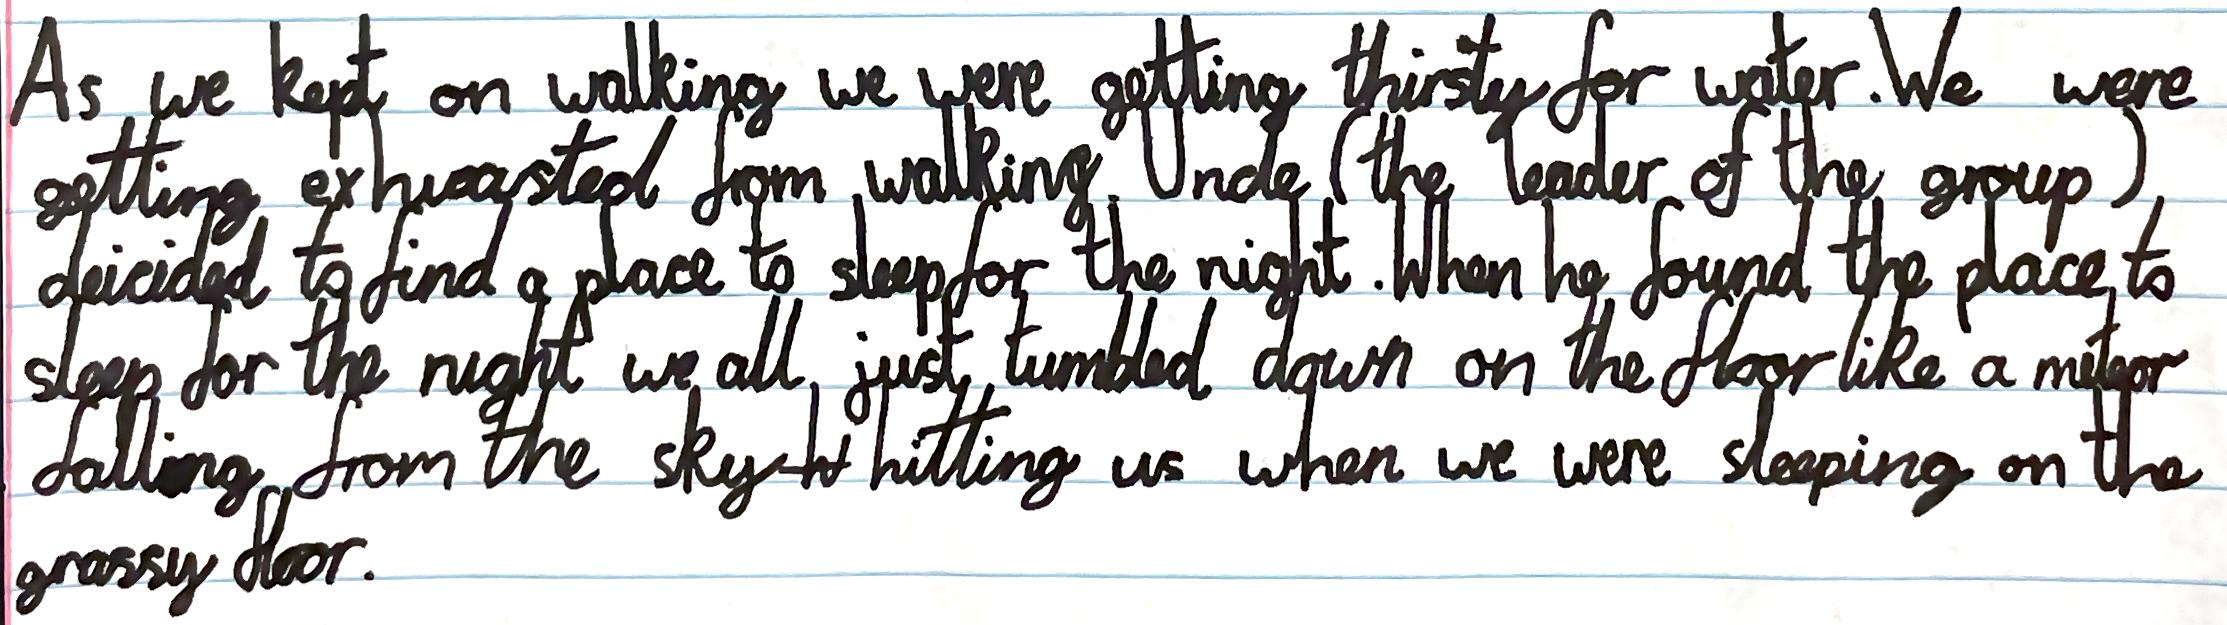 As we kept on walking we were getting thirsty for water. We were
getting exhuasted from walking. Unde (the leader of the group)
deicided to find a place to sleep for the night. When he found the place to
sleep for the night we all just tumbled down on the floor like a meteor
falling from the sky hitting us when we were sleeping on the
grassy floor.